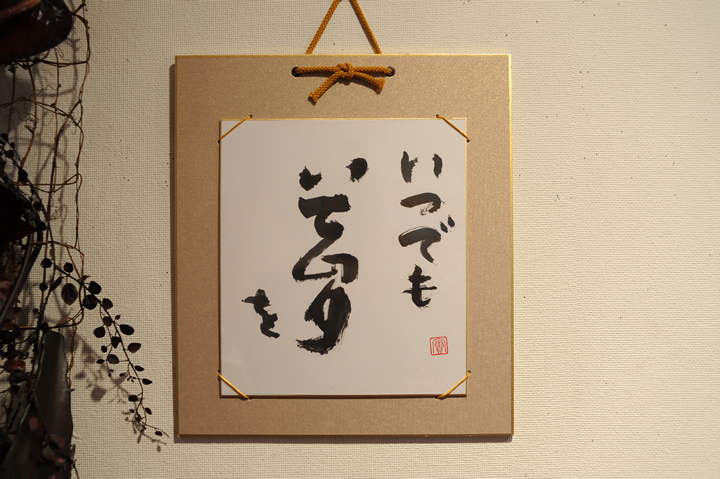 いつでも
夢
を